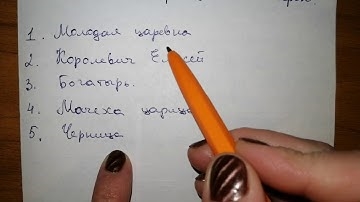 1. Молодая царевна
2. Королевич Елисей
3. Богатырь.
4. Мачеха царица
5. Черница